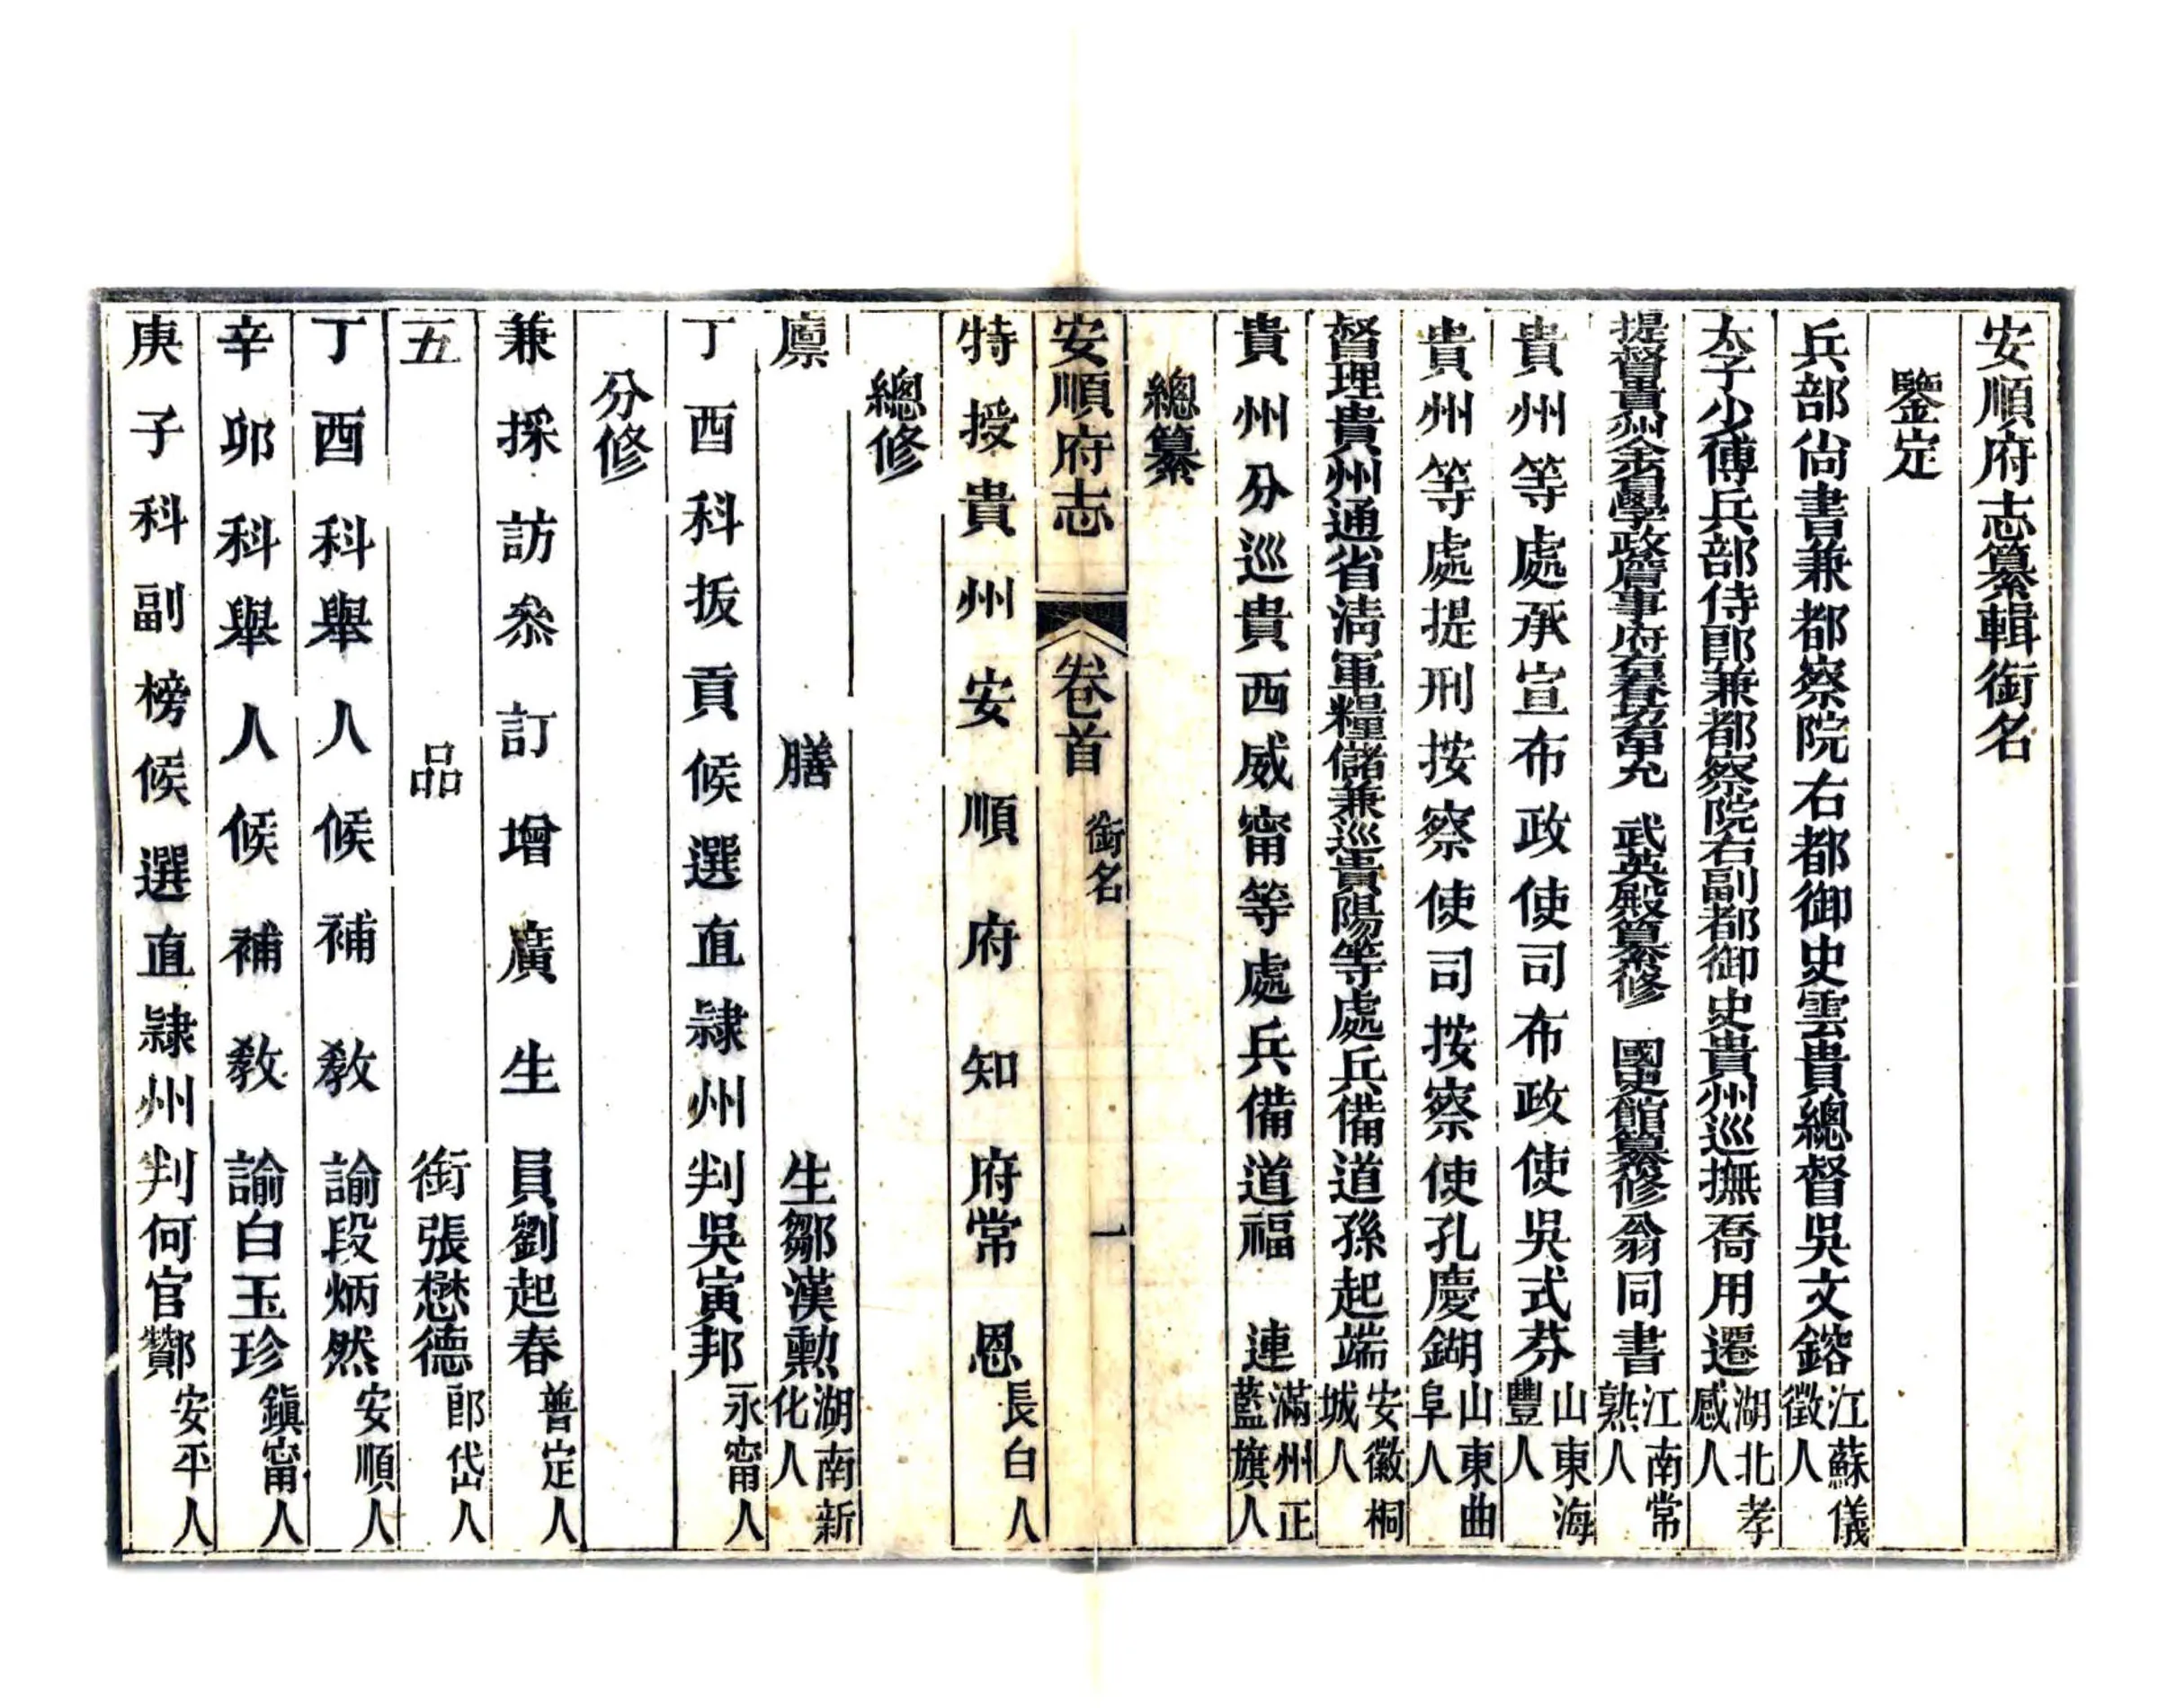 安順府志纂輯銜名
鑒定
兵部尙書兼都察院右都御史雲貴總督吳文鎔江蘇儀徵人
太子少傅兵部侍郎兼都察院右副都御史貴州巡撫喬用遷湖北孝感人
提督貴州全省學政詹事府右春坊右中允 武英殿纂修 國史館纂修翁同書江南常熟人
貴州等處承宣布政使司布政使吳式芬山東海豐人
貴州等處提刑按察使司按察使孔慶鍸山東曲阜人
督理貴州通省淸軍糧儲兼巡貴陽等處兵備道孫起端安徽桐城人
貴州分巡貴西威甯等處兵備道福 連滿州正藍旗人
總纂
安順府志 卷首 銜名 一
特授貴州安順府知府常 恩長白人
總修
廩膳生鄒漢勳湖南新化人
丁酉科拔貢候選直隸州州判吳寅邦永甯人
分修
兼採訪叅訂增廣生員劉起春普定人
五品銜張懋德郎岱人
丁酉科舉人候補敎諭段炳然安順人
辛卯科舉人候補敎諭白玉珍鎭甯人
庚子科副榜候選直隸州判何官酇安平人